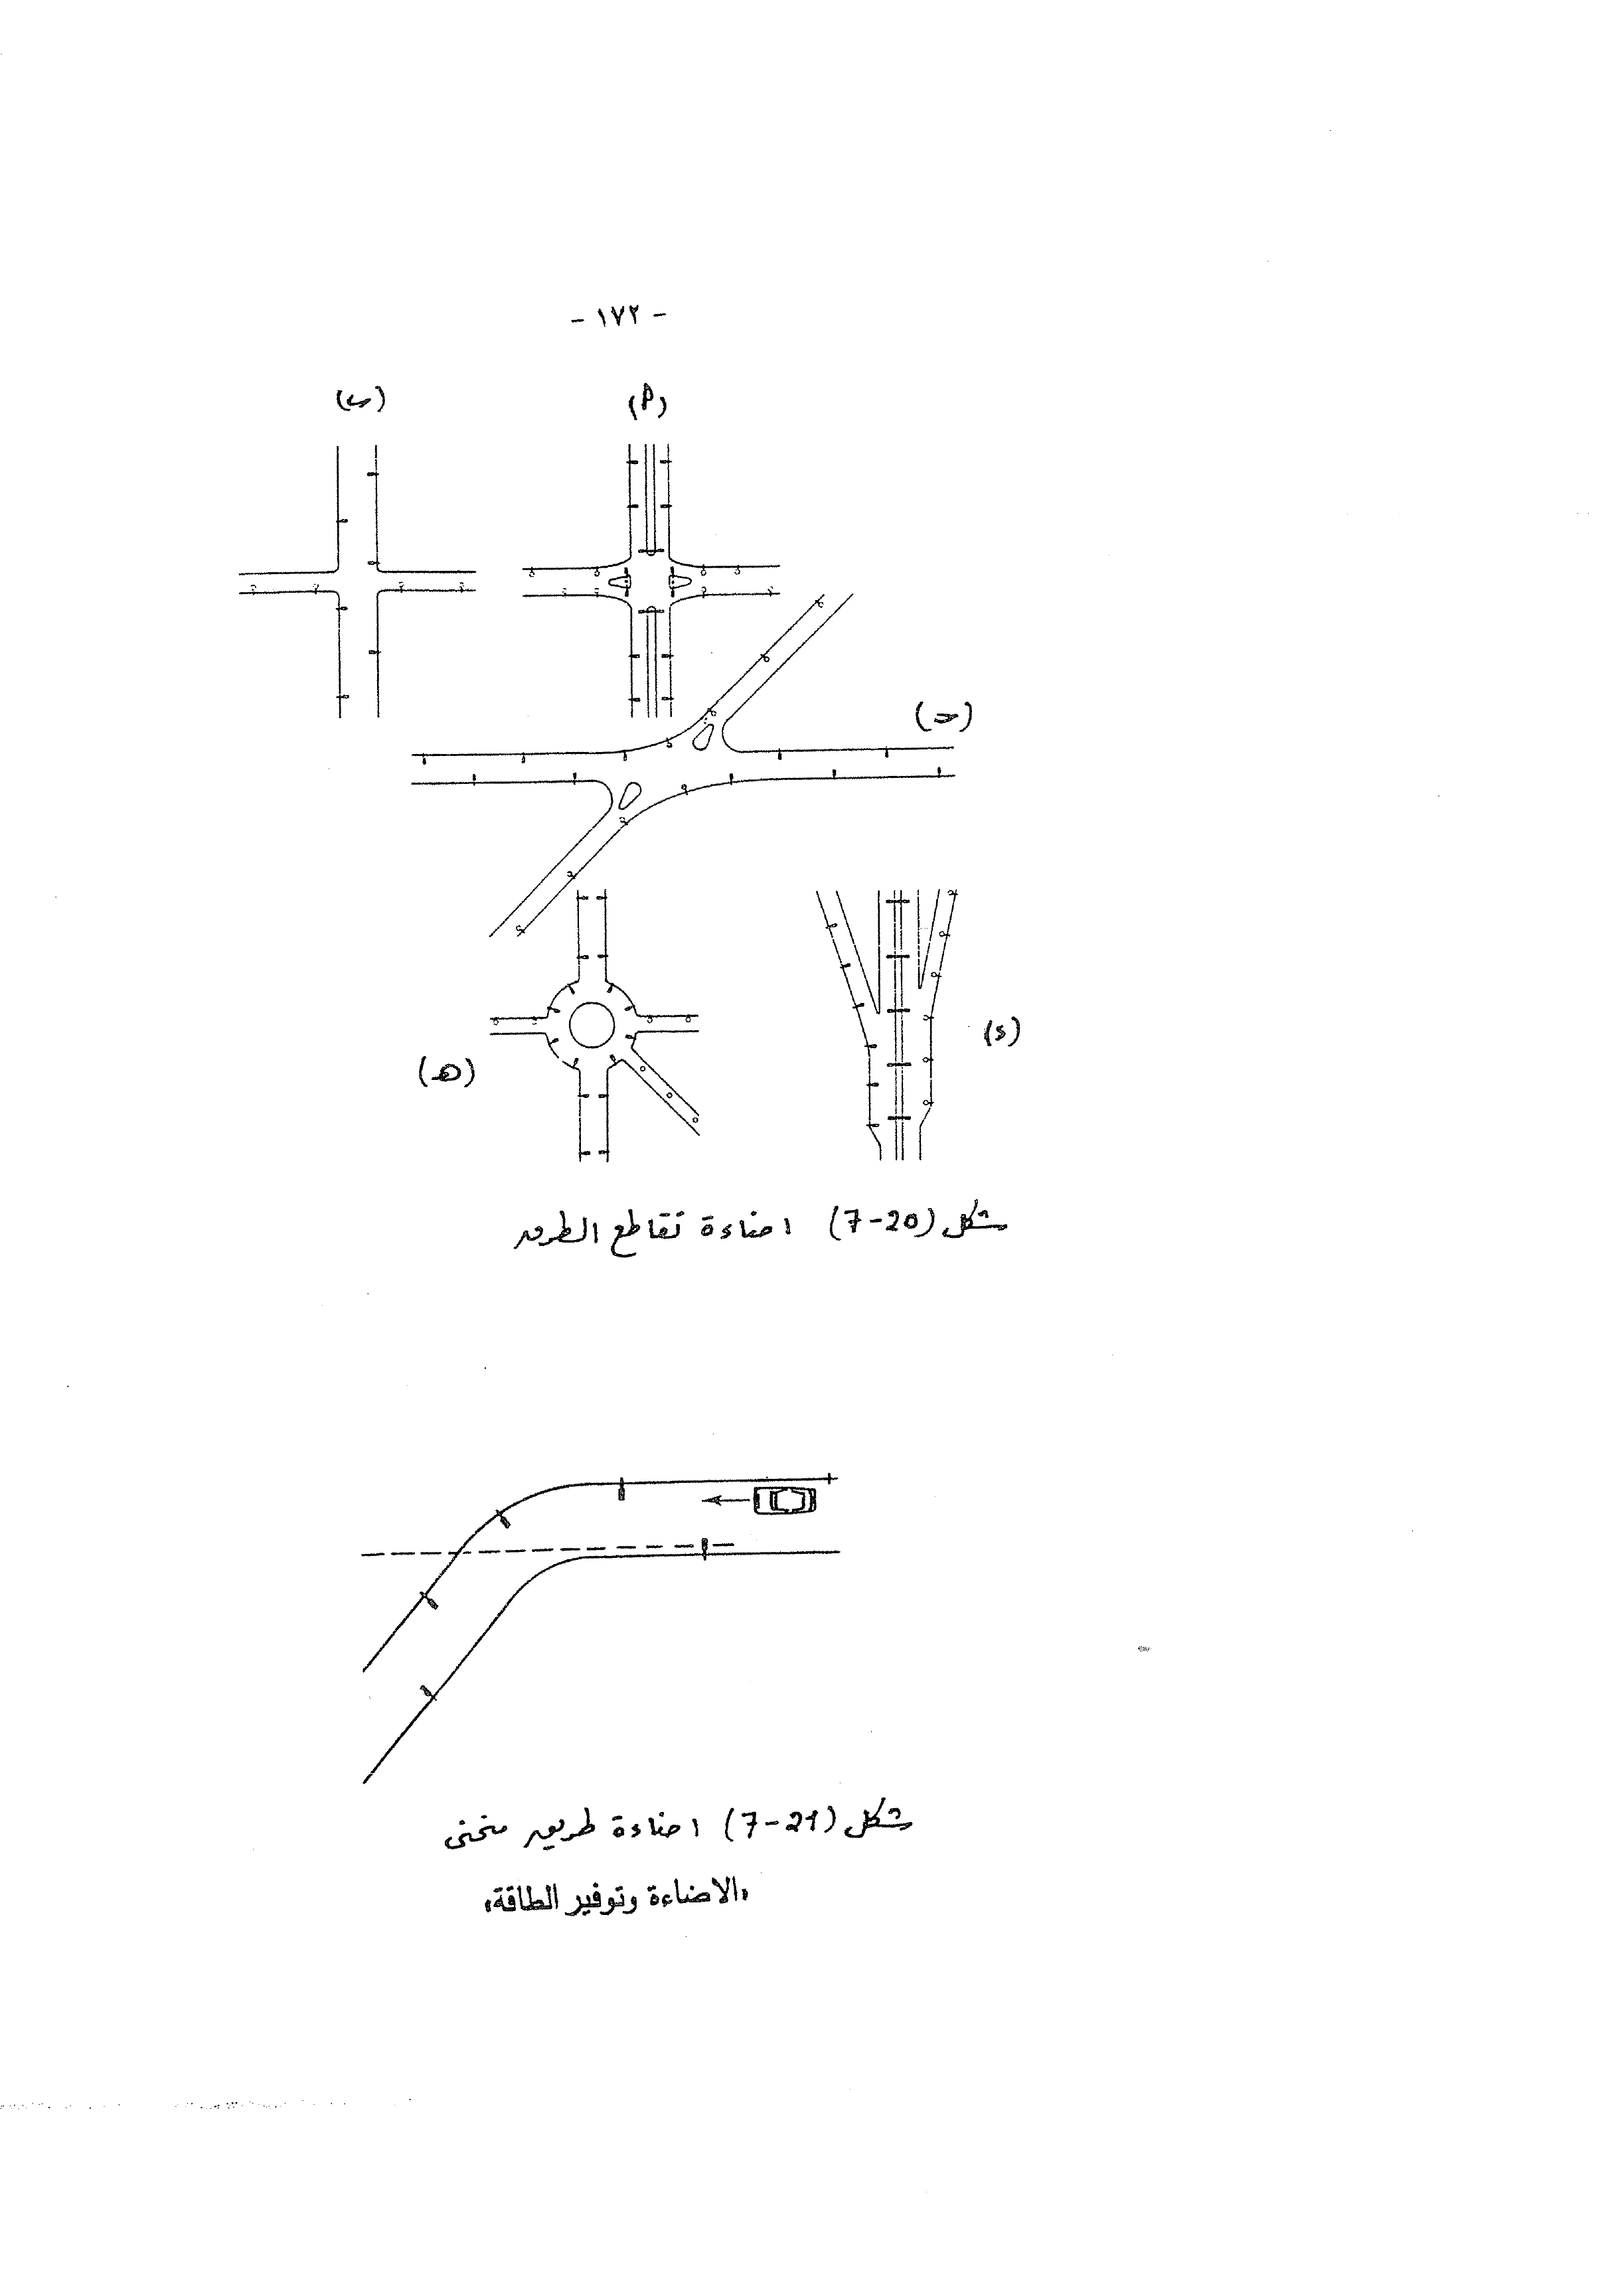 - ١٧٢ -
(أ)
(ب)
(ج)
(د)
(هـ)
شكل (7-20) اضاءة تقاطع الطرق
شكل (7-21) اضاءة طريق منحنى
«الاضاءة وتوفير الطاقة»